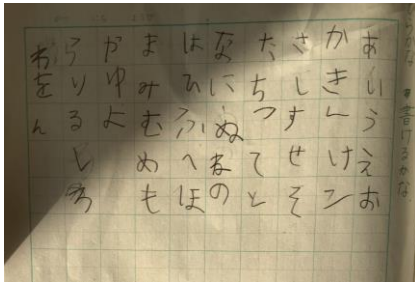 がな 書けるかな。
あいうえお
かきくけこ
さしすせそ
たちつてと
なにぬねの
はひふへほ
まみむめも
やゆよ
らりるれろ
わをん